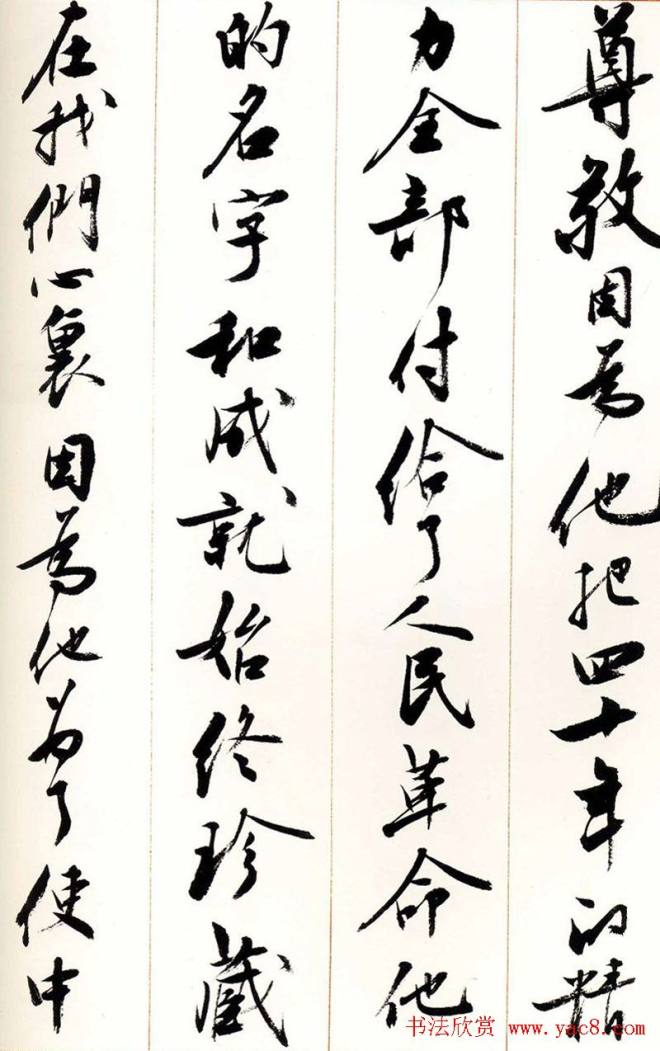 尊敬因為他把四十年的精
力全部付給了人民革命他
的名字和成就始終珍藏
在我們心裏因為他为了使中
书法欣赏 www.yac8.com